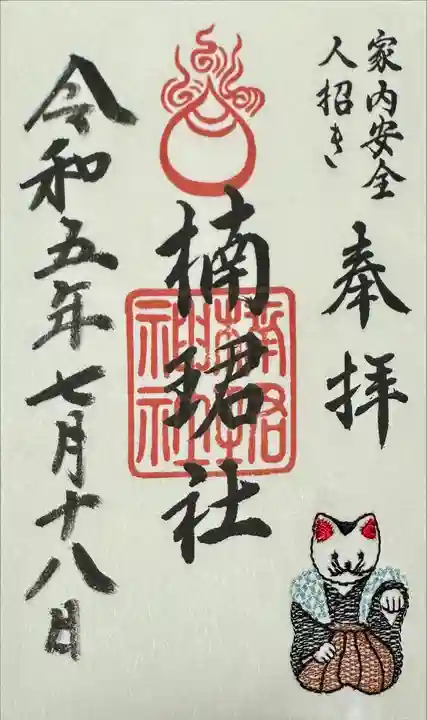 家内安全
人招き
奉拝
楠珺社
楠珺社神社
令和五年七月十八日